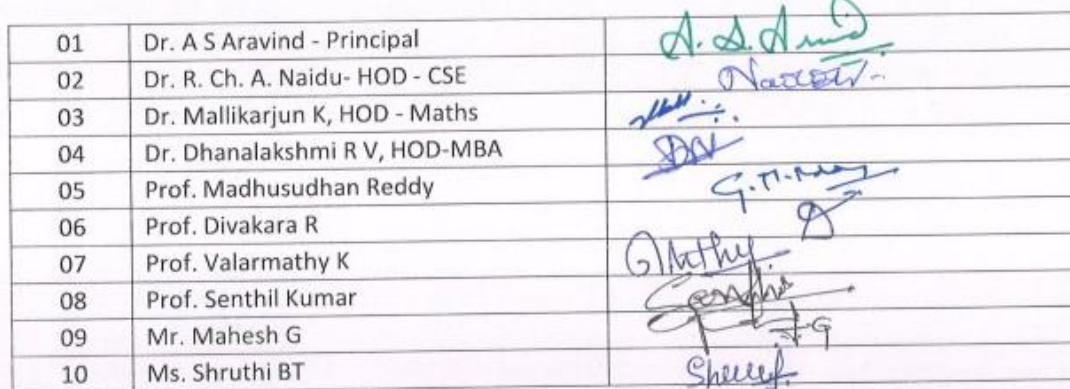 01 Dr. A S Aravind - Principal A. S. Arvind
02 Dr. R. Ch. A. Naidu- HOD - CSE
03 Dr. Mallikarjun K, HOD - Maths
04 Dr. Dhanalakshmi R V, HOD-MBA
05 Prof. Madhusudhan Reddy G.M.Reddy
06 Prof. Divakara R
07 Prof. Valarmathy K
08 Prof. Senthil Kumar
09 Mr. Mahesh G
10 Ms. Shruthi BT